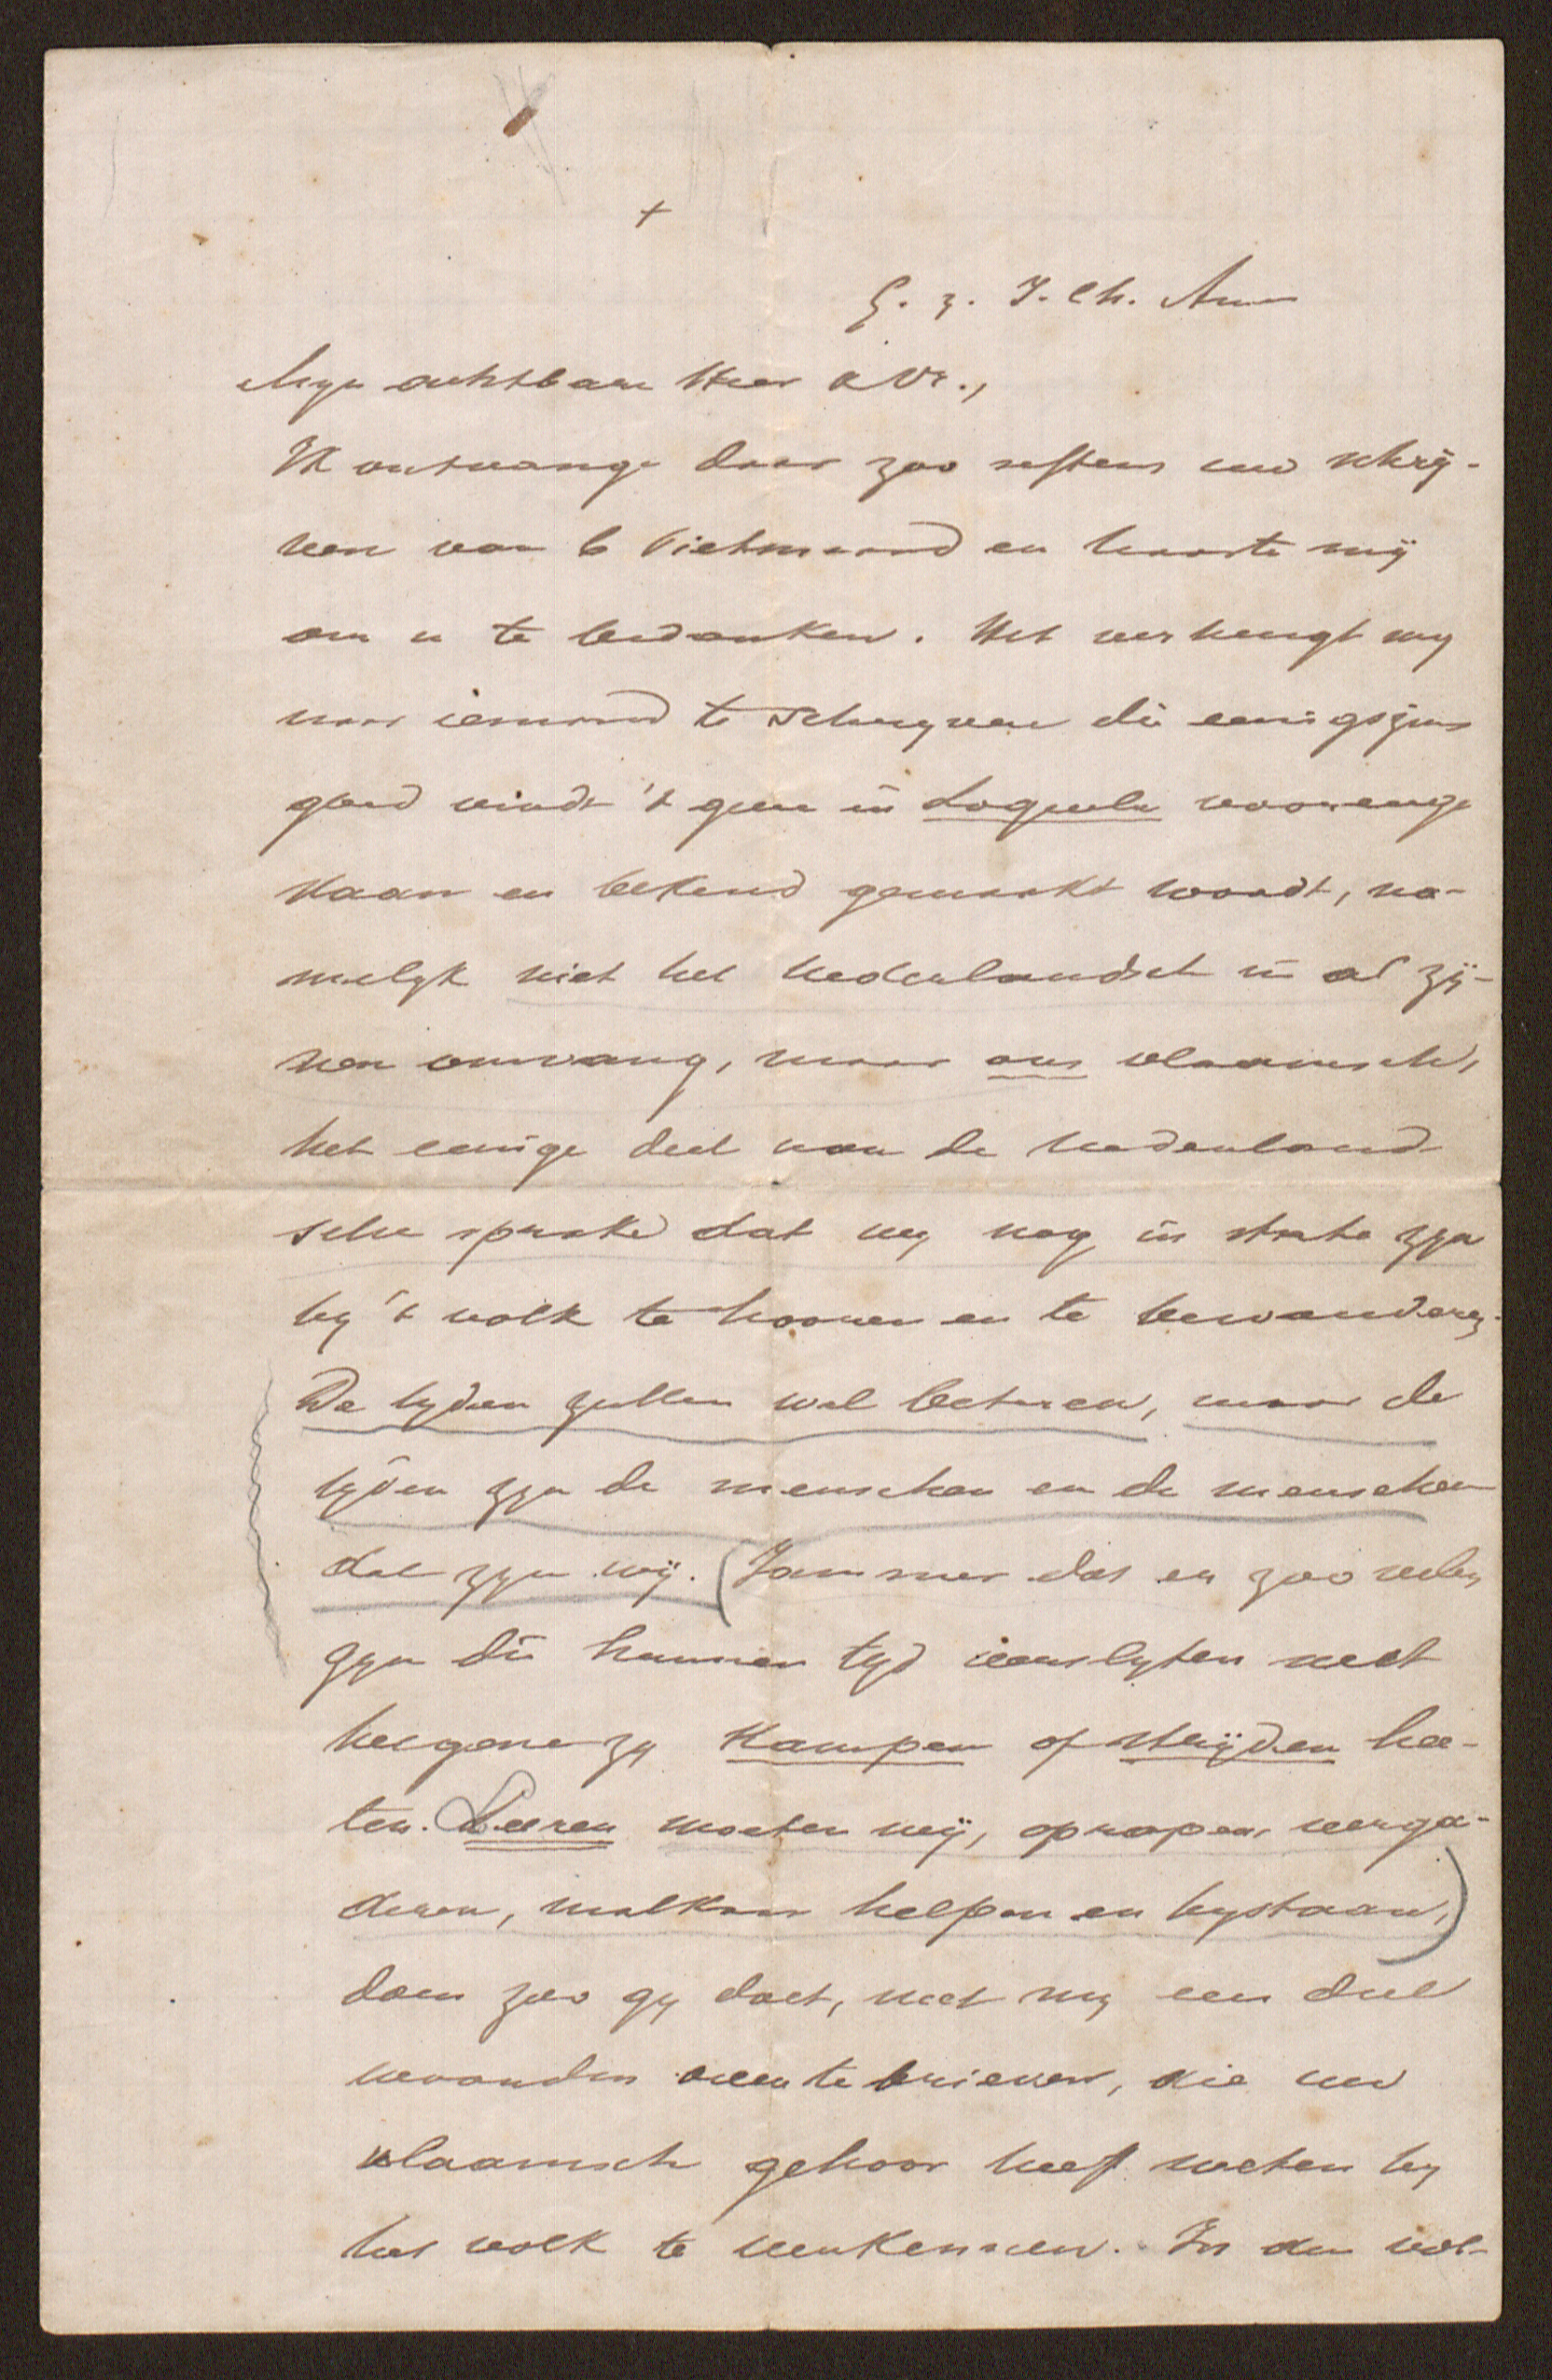 +
G. z. J. Ch. Amen
Mijn achtbare Heer & Vr.,
Ik ontvange daar zoo seffens uw schrij-
ven van 6 Pietmaand en haaste mij
om u te bedanken. Het verheugt my
naar iemand te schryven die eenigszins
goed vindt 't geen in Loquela voorenge
staan en bekend gemaakt wordt, na-
melyk niet het nederlandsch in al zij-
nen omvang, maar ons vlaamsch,
het eenige deel van de nederland-
sche sprake dat wy nog in state zyn
by 't volk te hooren en te bewanderen.
De tyden zullen wel beteren, maar de
tyden zyn de menschen en de menschen
dat zyn wij. (Jammer dat er zoo velen
zyn die hunnen tyd verslyten met
hetgene zy kampen of strijden hee-
ten. Leeren moeten wij, oprapen, verga-
deren, malkaar helpen en bystaan,)
doen zoo gy doet, met my een deel
woorden over te brieven, die uw
vlaamsch gehoor heeft weten by
het volk te herkennen. In den vol-